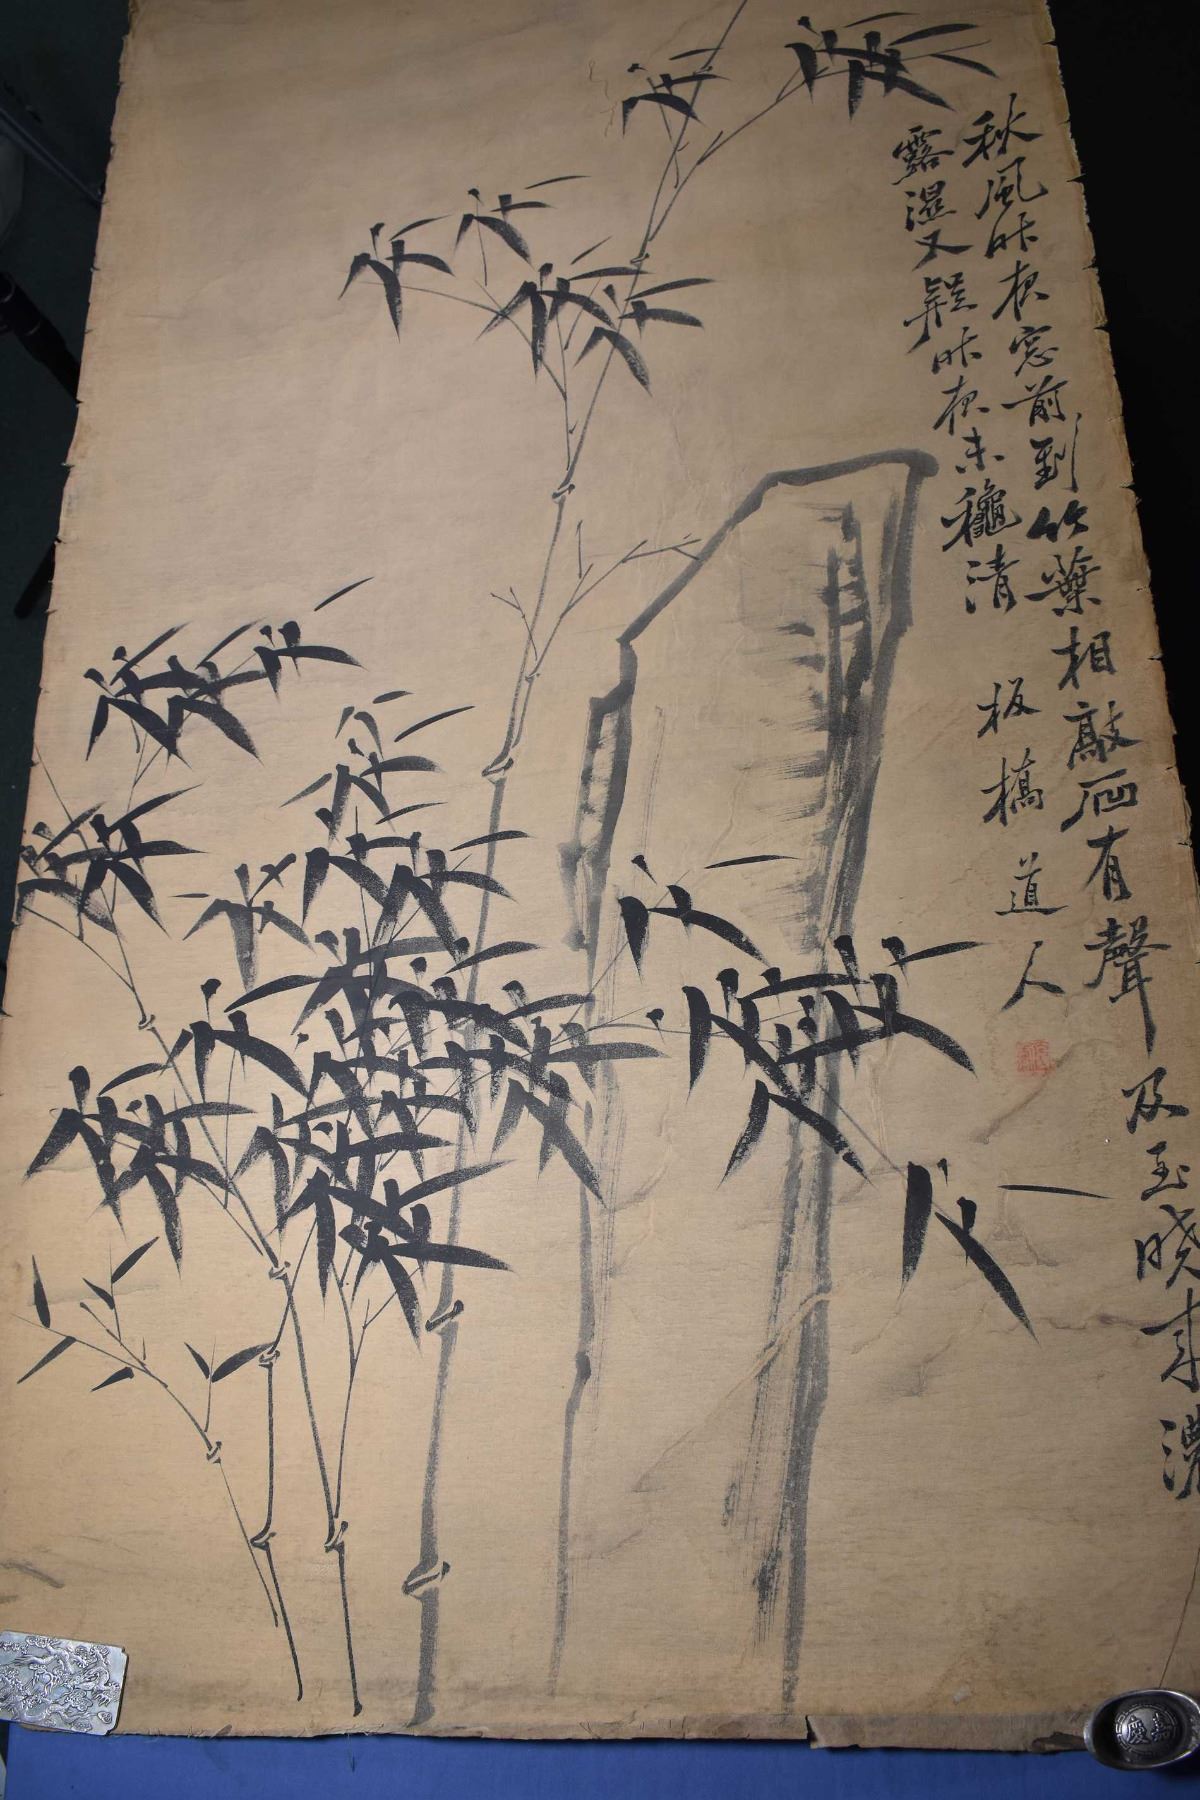 秋風昨夜窓前到竹葉相敲石有聲及至曉來濃
露湿又疑昨夜未穐清 板橋道人
嘉慶